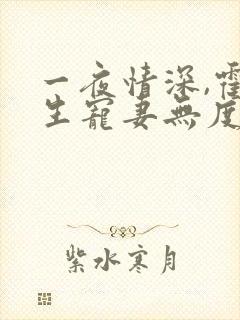 一夜情深,霍
生寵妻無度
紫水寒月